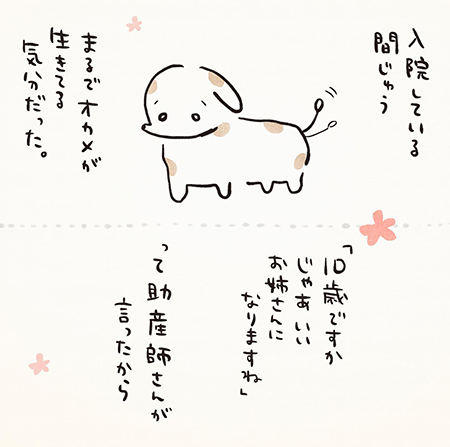 入院している
間じゅう
まるでオカメが
生きてる
気分だった。
「10歳ですか
じゃあいい
お姉さんに
なりますね」
って助産師さんが
言ったから